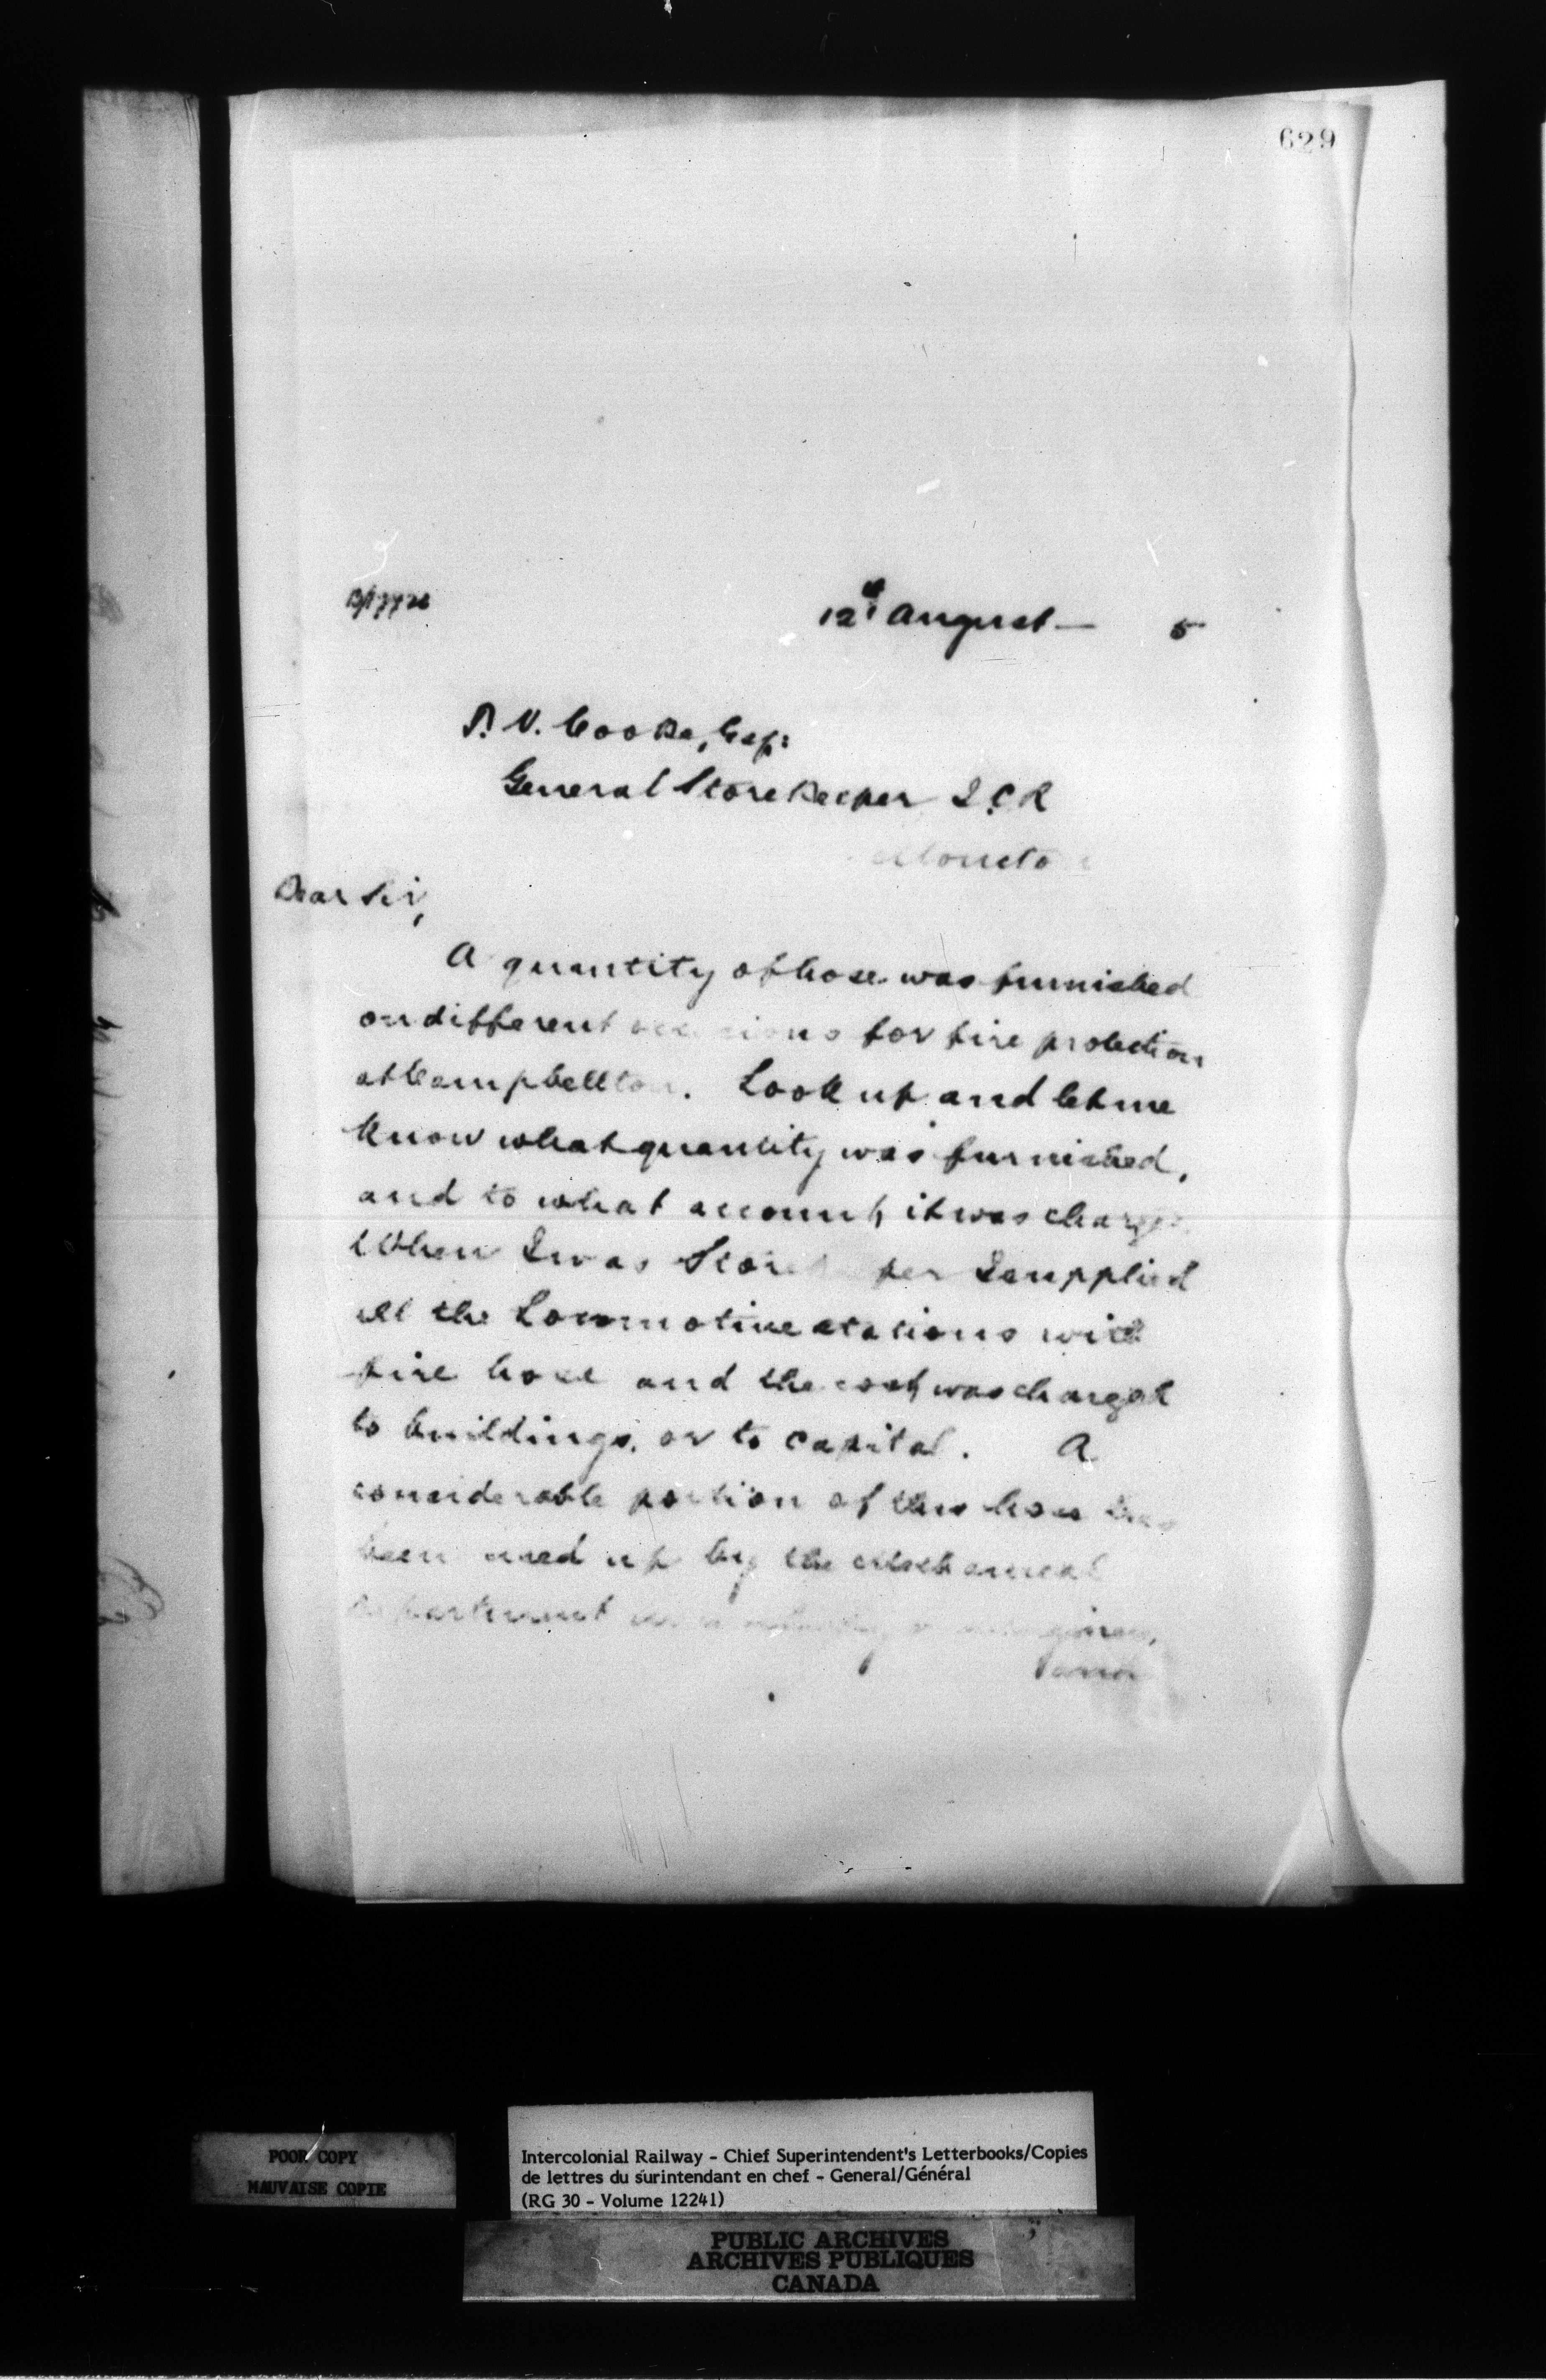 629
12th August — 5
T. V. Cooke, Esq:
General Storekeeper I.C.R
Moncton
Dear Sir,
A quantity of hose was furnished
on different occasions for fire protection
at Campbellton. Look up and let me
know what quantity was furnished,
and to what account, it was charged
When I was Storekeeper I supplied
all the Locomotive stations with
fire hose and the cost was charged
to buildings, or to capital. A
considerable portion of this hose has
been used up by the Mechanical
Department
and
POOR COPY
MAUVAISE COPIE
Intercolonial Railway - Chief Superintendent's Letterbooks/Copies
de lettres du surintendant en chef - General/Général
(RG 30 - Volume 12241)
PUBLIC ARCHIVES
ARCHIVES PUBLIQUES
CANADA